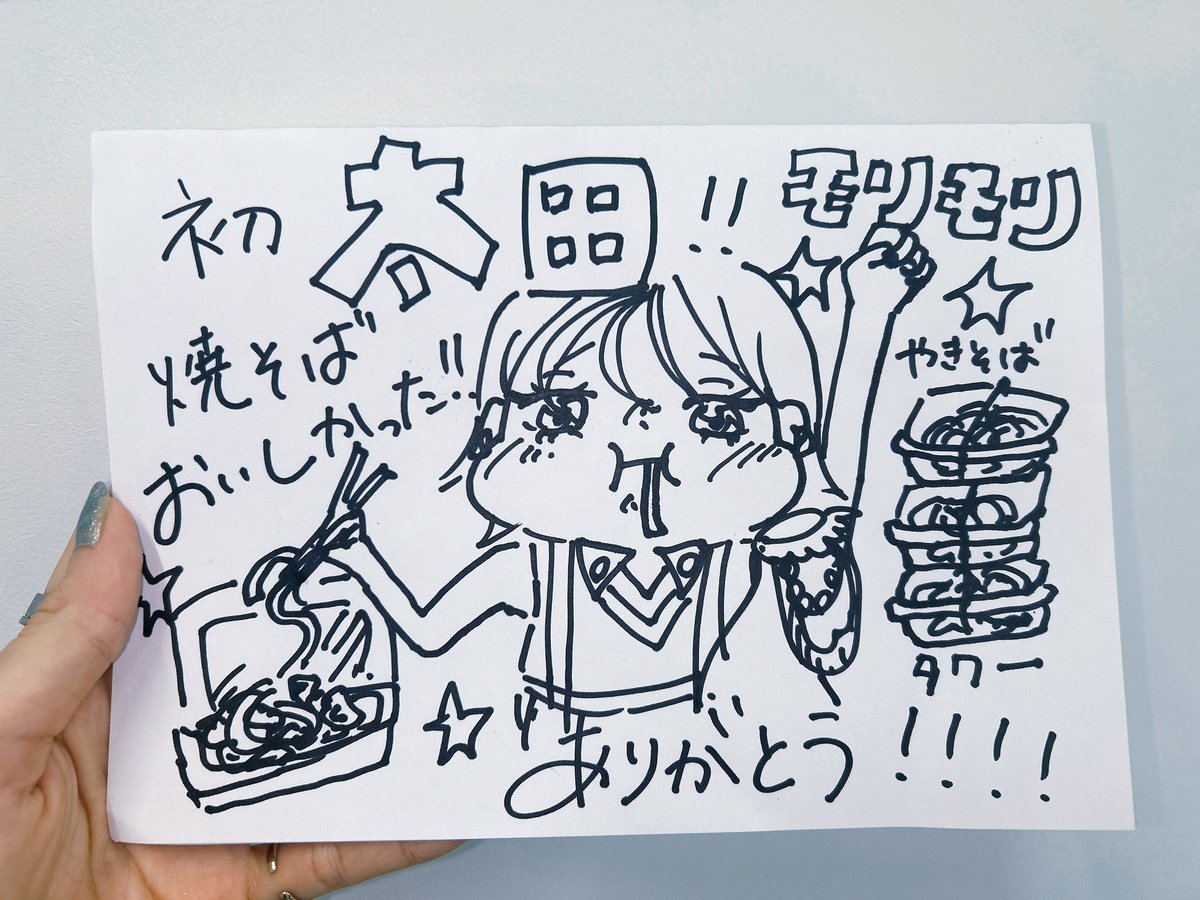 初 太田!! モリモリ
焼そば
おいしかった!!
やきそば
タワー
ありがとう!!!!